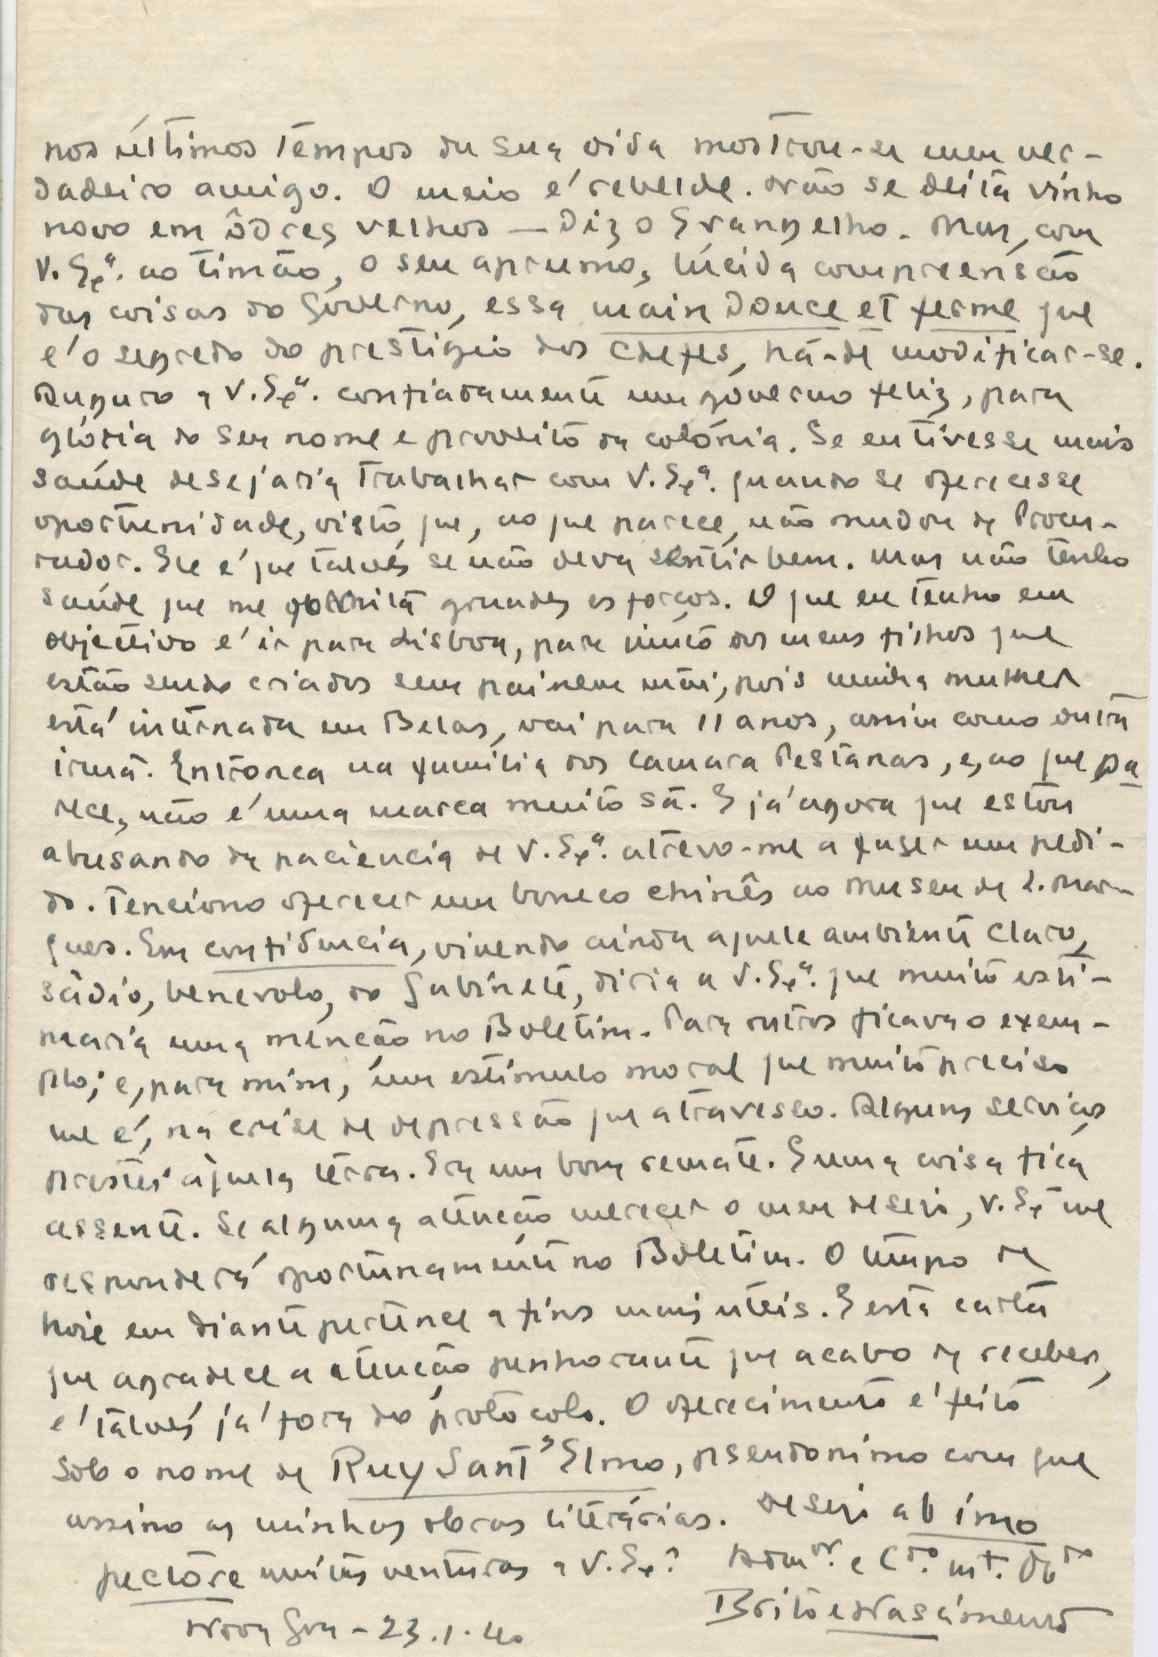 nos últimos tempos da sua vida mostrou-se meu ver-
dadeiro amigo. O meio é rebelde. Não se deita vinho
novo em ôdres velhos — diz o Evangelho. Mas, com
V. Exª. ao timão, o seu aprumo, lúcida compreensão
das coisas do Govêrno, essa main douce et ferme que
é o segredo do prestígio dos chefes, há-de modificar-se.
Auguro a V. Exª. confiadamente um govêrno feliz, para
glória do seu nome e proveito da colónia. Se eu tivesse mais
saúde desejaria trabalhar com V. Exª. quando se oferecesse
oportunidade, visto que, ao que parece, não mudou de Procu-
rador. Ele é que talvês se não deva sentir bem. Mas não tenho
saúde que me permita grandes esforços. O que eu tenho em
objectivo é ir para Lisboa, para junto dos meus filhos que
estão sendo criados sem pai nem mãi, pois minha mulher
está internada em Belas, vai para 11 anos, assim como outra
irmã. Entronca na família dos Camara Pestanas, e, ao que pa
rece, não é uma marca muito sã. E já agora que estou
abusando da paciencia de V. Exª. atrevo-me a fazer um pedi-
do. Tenciono oferecer um boneco chinês ao museu de L. Mar-
ques. Em confidencia, vivendo ainda aquele ambiente claro,
sàdio, benevolo, do Gabinete, diria a V. Exª. que muito esti-
maria uma menção no Boletim. Para outros ficava o exem-
plo; e, para mim, um estimulo moral que muito preciso
me é, na crise de depressão que atravesso. Alguns serviços
prestei àquela terra. Era um bom remate. E uma coisa fica
assente. Se alguma atenção merecer o meu desejo, V. Ex me
responderá oportunamente no Boletim. O tempo de
hoje em diante pertence a fins mais úteis. E esta carta
que agradece a atenção penhorante que acabo de receber,
é talvês já fora do protocolo. O oferecimento é feito
sob o nome de Ruy Sant'Elmo, pseudonimo com que
assino as minhas obras literárias. Desejo ab imo
pectore muitas venturas a V. Exª
Admor. e Cdo. mt. Obdo
Brito e Nascimento
Nova Goa - 23.1.40